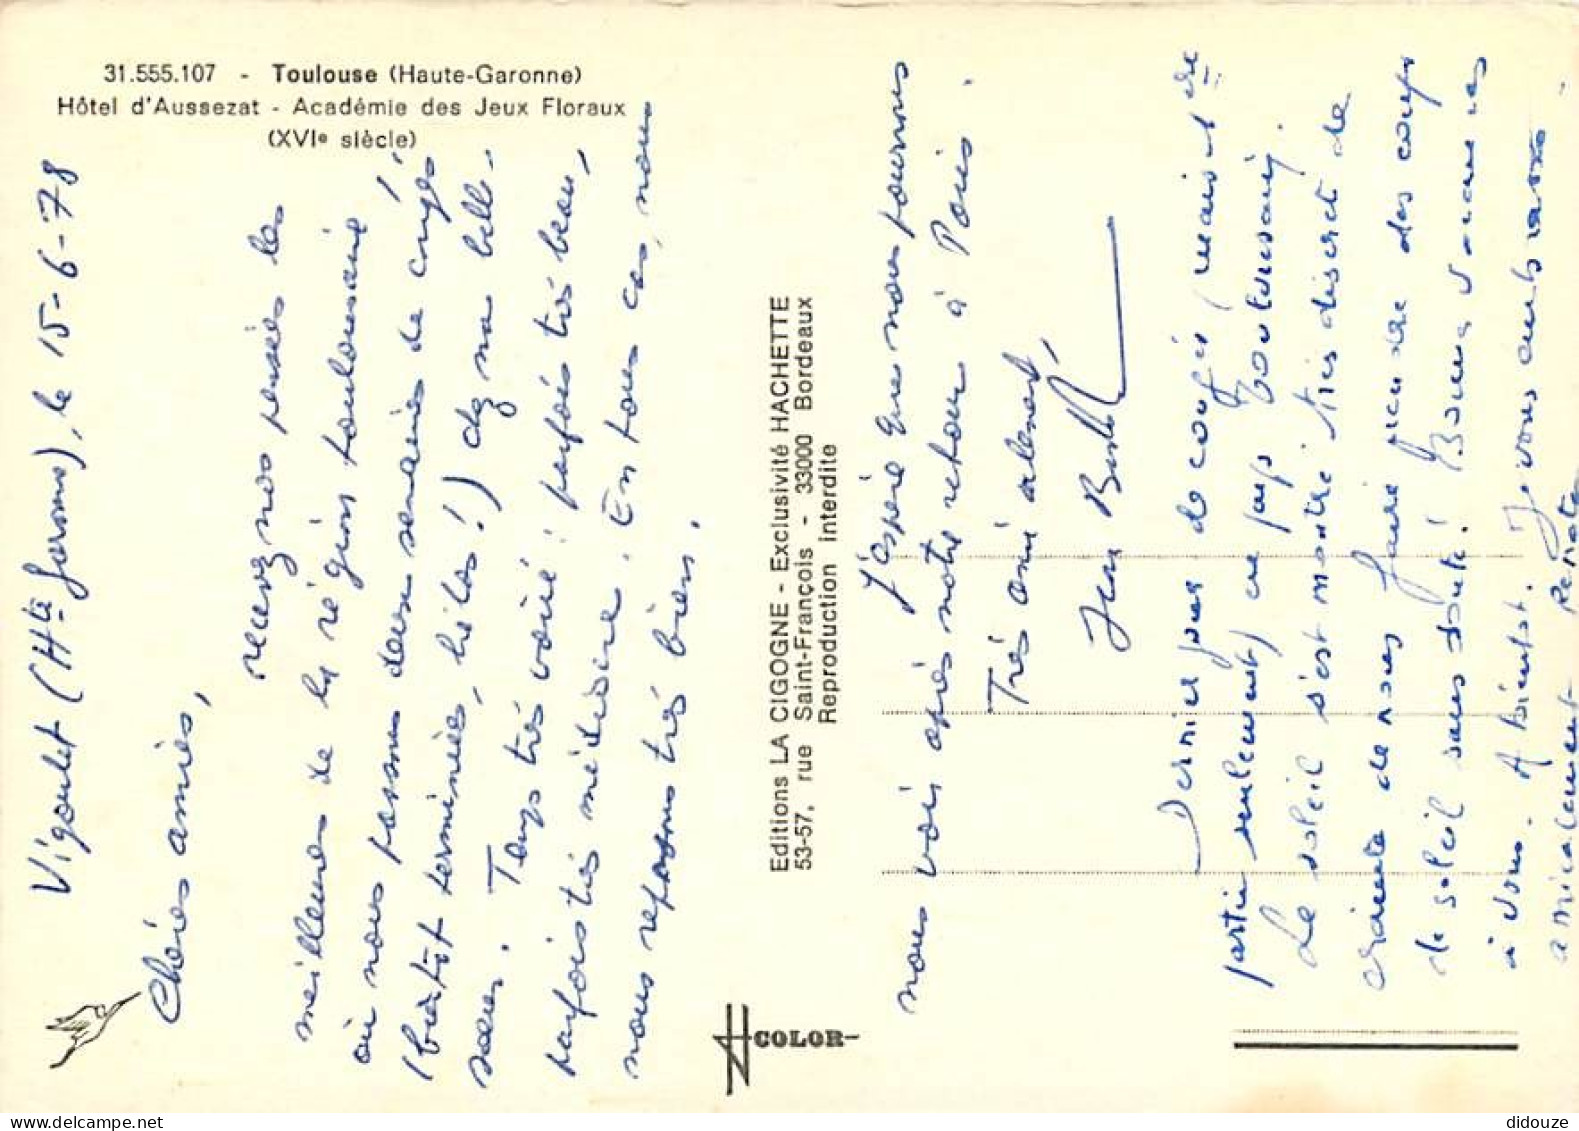 31.555.107 - Toulouse (Haute-Garonne)
Hôtel d'Aussezat - Académie des Jeux Floraux
(XVIe siècle)
Vigoulet (Hte Garonne), le 15-6-78
Chères amies,
recevez nos pensées les
meilleures de la région toulousaine
où nous passons deux semaines de congés
(bientôt terminées, hélas!) chez ma belle-
soeur. Temps très varié : parfois très beau,
parfois très médiocre. En tous cas, nous
nous reposons très bien.
Editions LA CIGOGNE - Exclusivité HACHETTE
53-57, rue Saint-François - 33000 Bordeaux
Reproduction interdite
COLOR
J'espère que nous pourrons
nous voir après notre retour à Paris.
Très amicalement,
Jean
Dernier jour de congés (mais 1ère
partie seulement) en pays toulousain.
Le soleil s'est montré très discret de
crainte de nous faire prendre des coups
de soleil sans doute! Bonnes vacances
à vous. A bientôt. Je vous embrasse
amicalement Renée
didouze